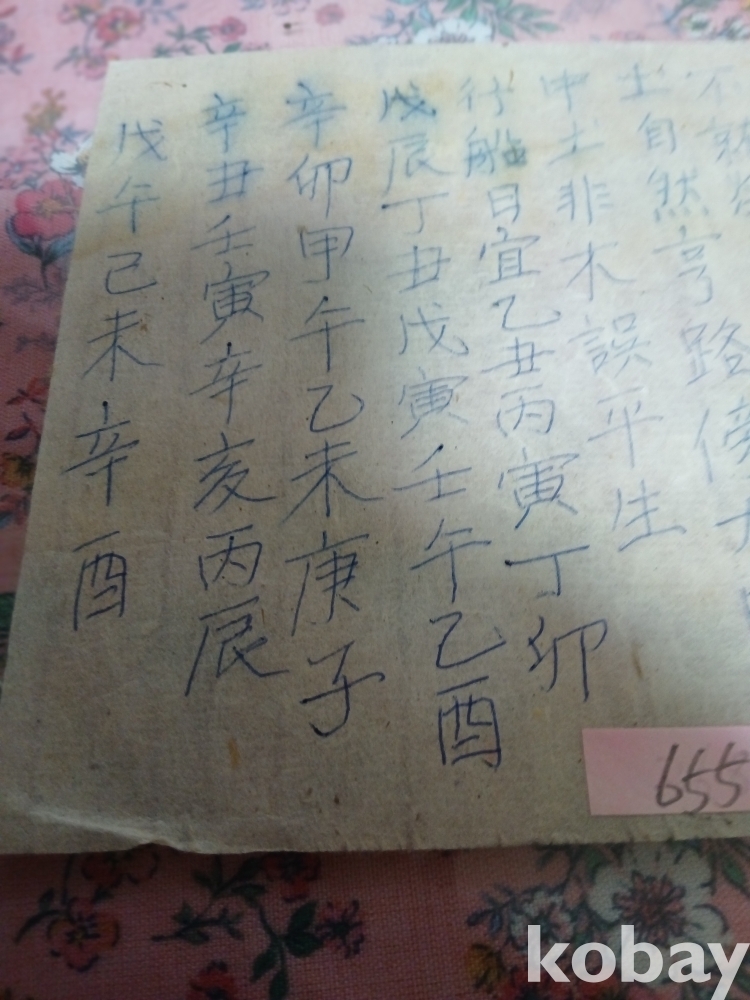 不就
土自然亨路傍
中土非木誤平生
行船日宜乙丑丙寅丁卯
戊辰丁丑戊寅壬午乙酉
辛卯甲午乙未庚子
辛丑壬寅辛亥丙辰
戊午己未辛酉
655
kobay